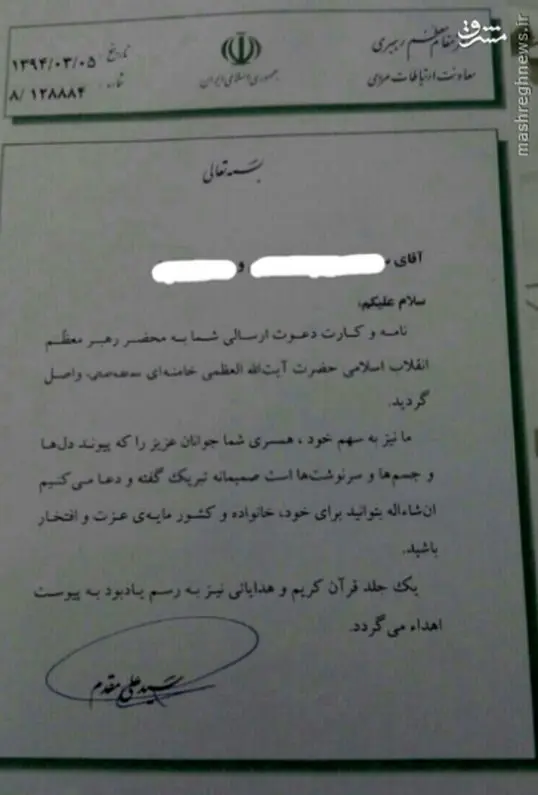 مقام معظم رهبری
معاونت ارتباطات مردمی
جمهوری اسلامی ایران
تاریخ: ۱۳۹۴/۰۳/۰۵
شماره: ۸/ ۱۲۸۸۸۴
مشرق
mashreghnews.ir
بسمه تعالی
آقای و
سلام علیکم؛
نامه و کارت دعوت ارسالی شما به محضر رهبر معظم
انقلاب اسلامی حضرت آیت‌الله العظمی خامنه‌ای واصل
گردید.
ما نیز به سهم خود ، همسری شما جوانان عزیز را که پیوند دل‌ها
و جسم‌ها و سرنوشت‌ها است صمیمانه تبریک گفته و دعا می‌کنیم
ان‌شاءاله بتوانید برای خود، خانواده و کشور مایه‌ی عزت و افتخار
باشید.
یک جلد قرآن کریم و هدایائی نیز به رسم یادبود به پیوست
اهداء می‌گردد.
سید علی مقدم